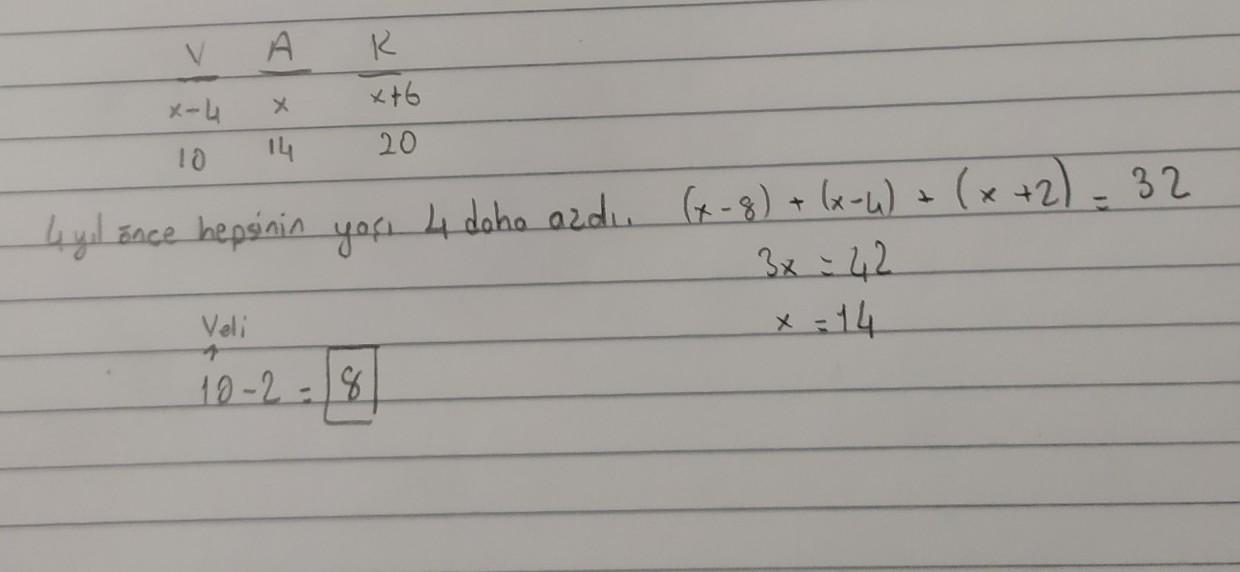 V A K
x-4 x x+6
10 14 20
4 yıl önce hepsinin yaşı 4 daha azdı. (x-8) + (x-4) + (x+2) = 32
3x = 42
x = 14
Veli
↑
10-2 = 8